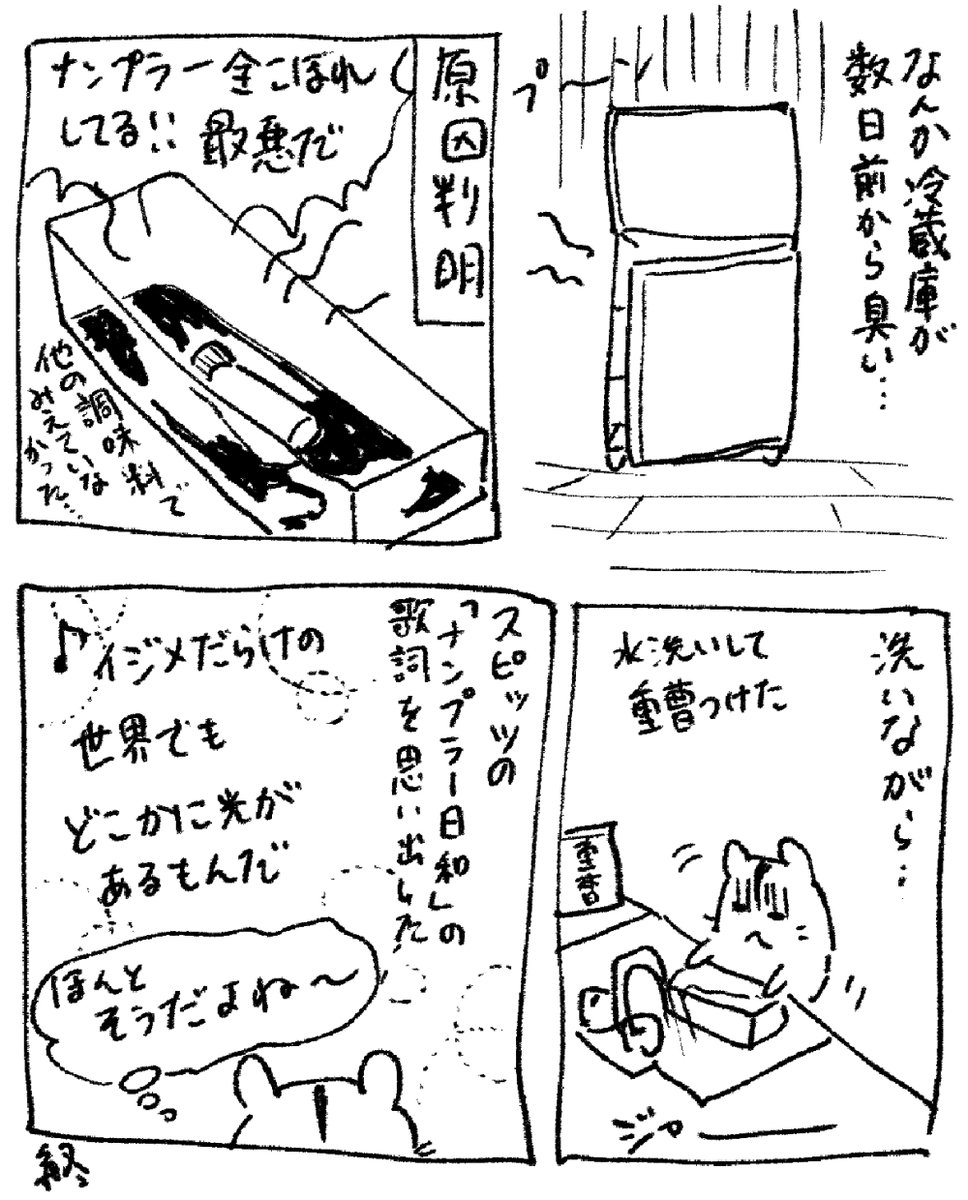 なんか冷蔵庫が
数日前から臭い…
プ
〜ン
原因判明
ナンプラー全こぼれ
してる!! 最悪だ
他の調味料で
みえていな
かった…
洗いながら…
水洗いして
重曹つけた
重曹
ジャー
スピッツの
「ナンプラー日和」の
歌詞を思い出した
♪イジメだらけの
世界でも
どこかに光が
あるもんだ
ほんと
そうだよね〜
終